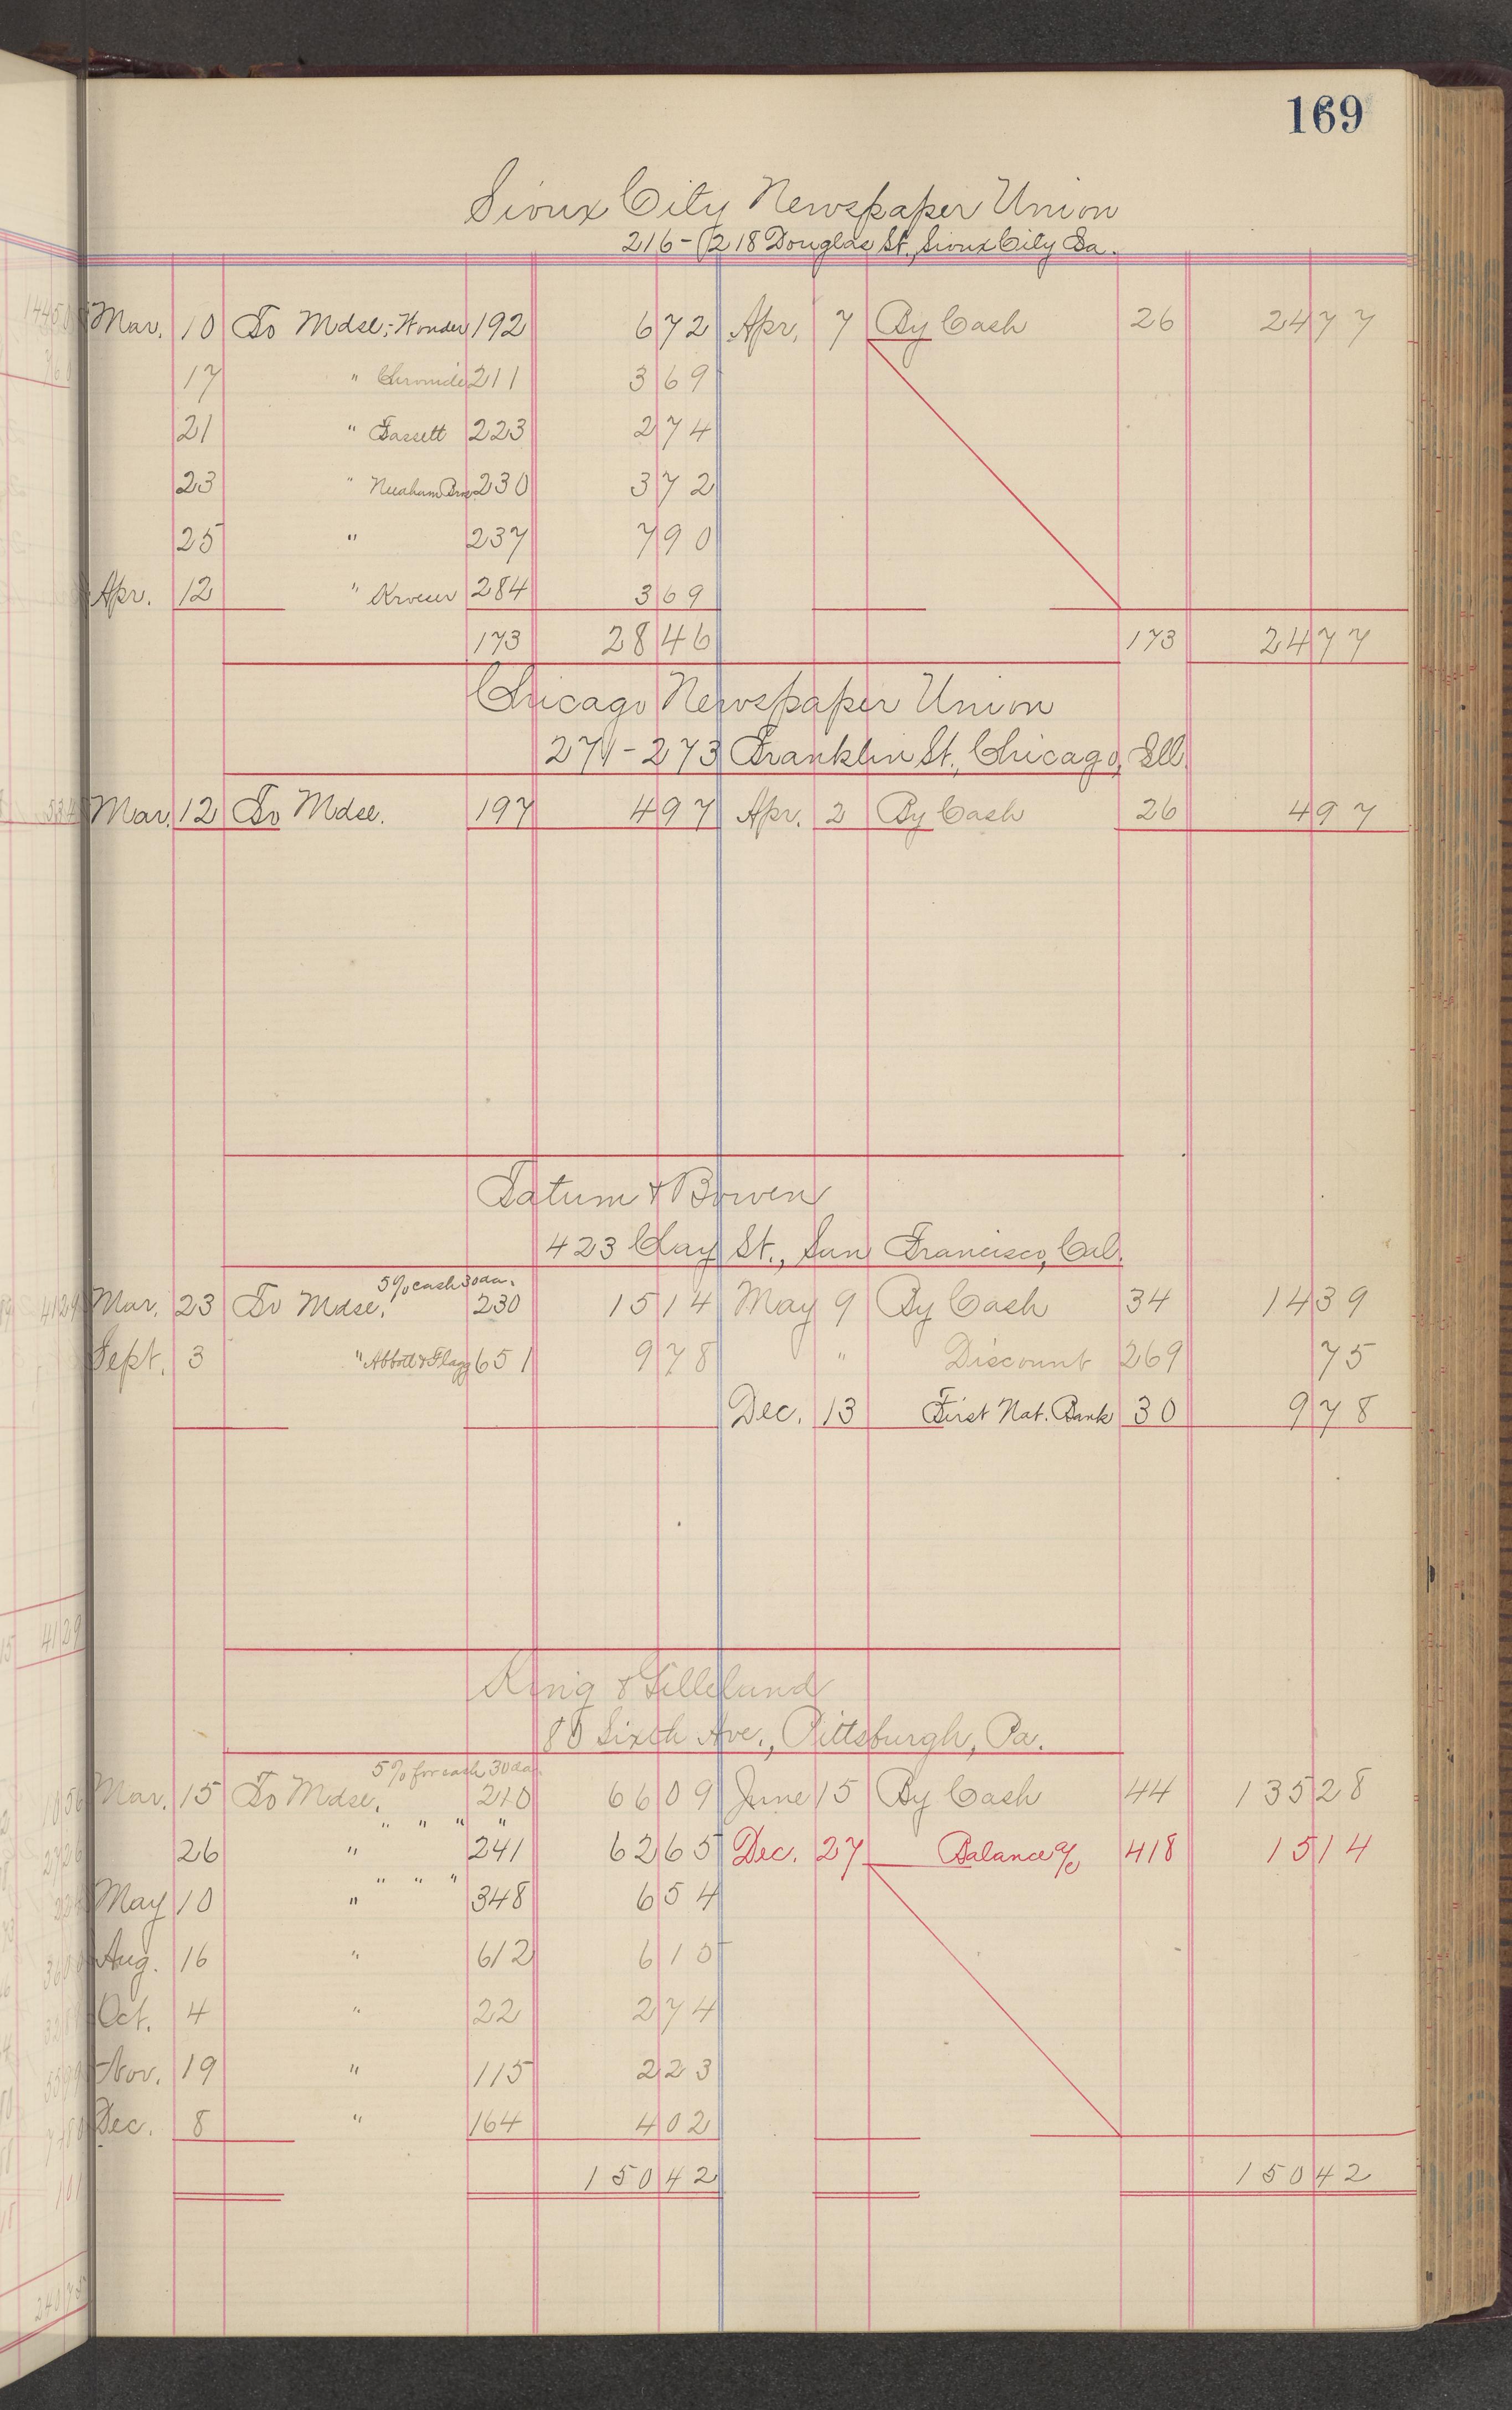 169
Sioux City Newspaper Union
216-218 Douglas St., Sioux City Ia.
Mar. 10 To Mdse,- Wonder 192 6 72 Apr. 7 By Cash 26 24 77
17 " Chronicle 211 3 69
21 " Fassett 223 2 74
23 " 230 3 72
25 " 237 7 90
Apr. 12 " 284 3 69
173 28 46 173 24 77
Chicago Newspaper Union
271-273 Franklin St., Chicago, Ill.
Mar. 12 To Mdse. 197 4 97 Apr. 2 By Cash 26 4 97
Tatum & Bowen
423 Clay St., San Francisco, Cal.
5% cash 30 da.
Mar. 23 To Mdse. 230 15 14 May 9 By Cash 34 14 39
Sept. 3 " Abbott & Flagg 651 9 78 " Discount 269 75
Dec. 13 First Nat. Bank 30 9 78
King & Gilleland
80 Sixth Ave., Pittsburgh, Pa.
5% for cash 30 da.
Mar. 15 To Mdse. 210 66 09 June 15 By Cash 44 135 28
" " " "
26 " 241 62 65 Dec. 27 Balance % 418 15 14
" " "
May 10 " 348 6 54
Aug. 16 " 612 6 15
Oct. 4 " 22 2 74
Nov. 19 " 115 2 23
Dec. 8 " 164 4 02
150 42 150 42